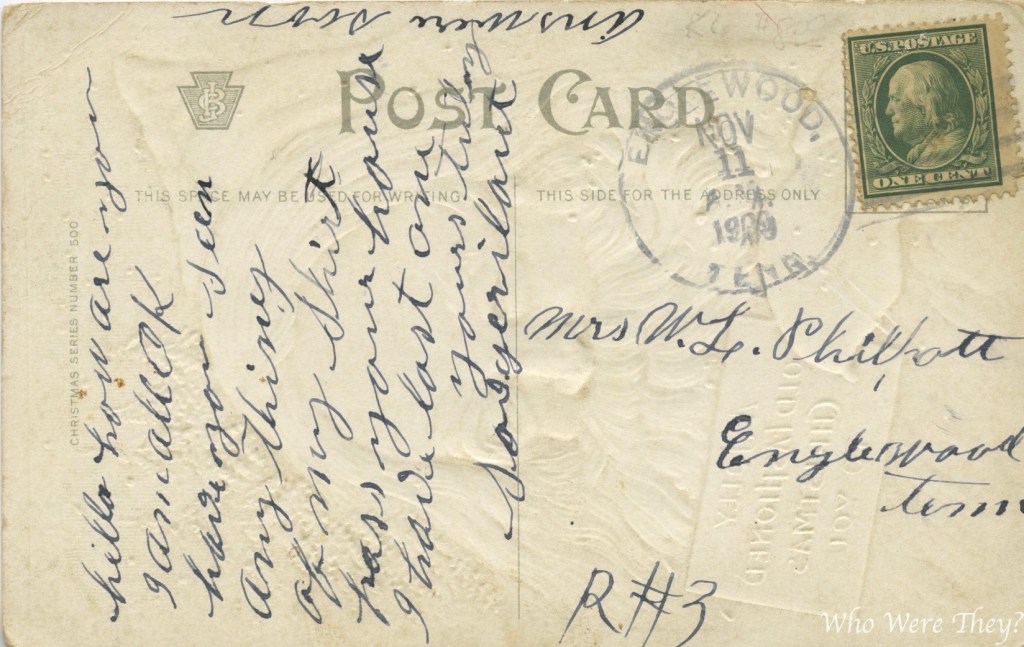 answer soon
POST CARD
U.S. POSTAGE
ONE CENT
ENGLEWOOD.
NOV
11
1909
TENN.
THIS SPACE MAY BE USED FOR WRITING
THIS SIDE FOR THE ADDRESS ONLY
CHRISTMAS SERIES NUMBER 500
hello how are you
I am all OK
have you seen
any thing
of my Shirt
pass your house
I have lost one
yours truly
Mrs W. L. Philpott
Englewood
tenn
R#3
Who Were They?